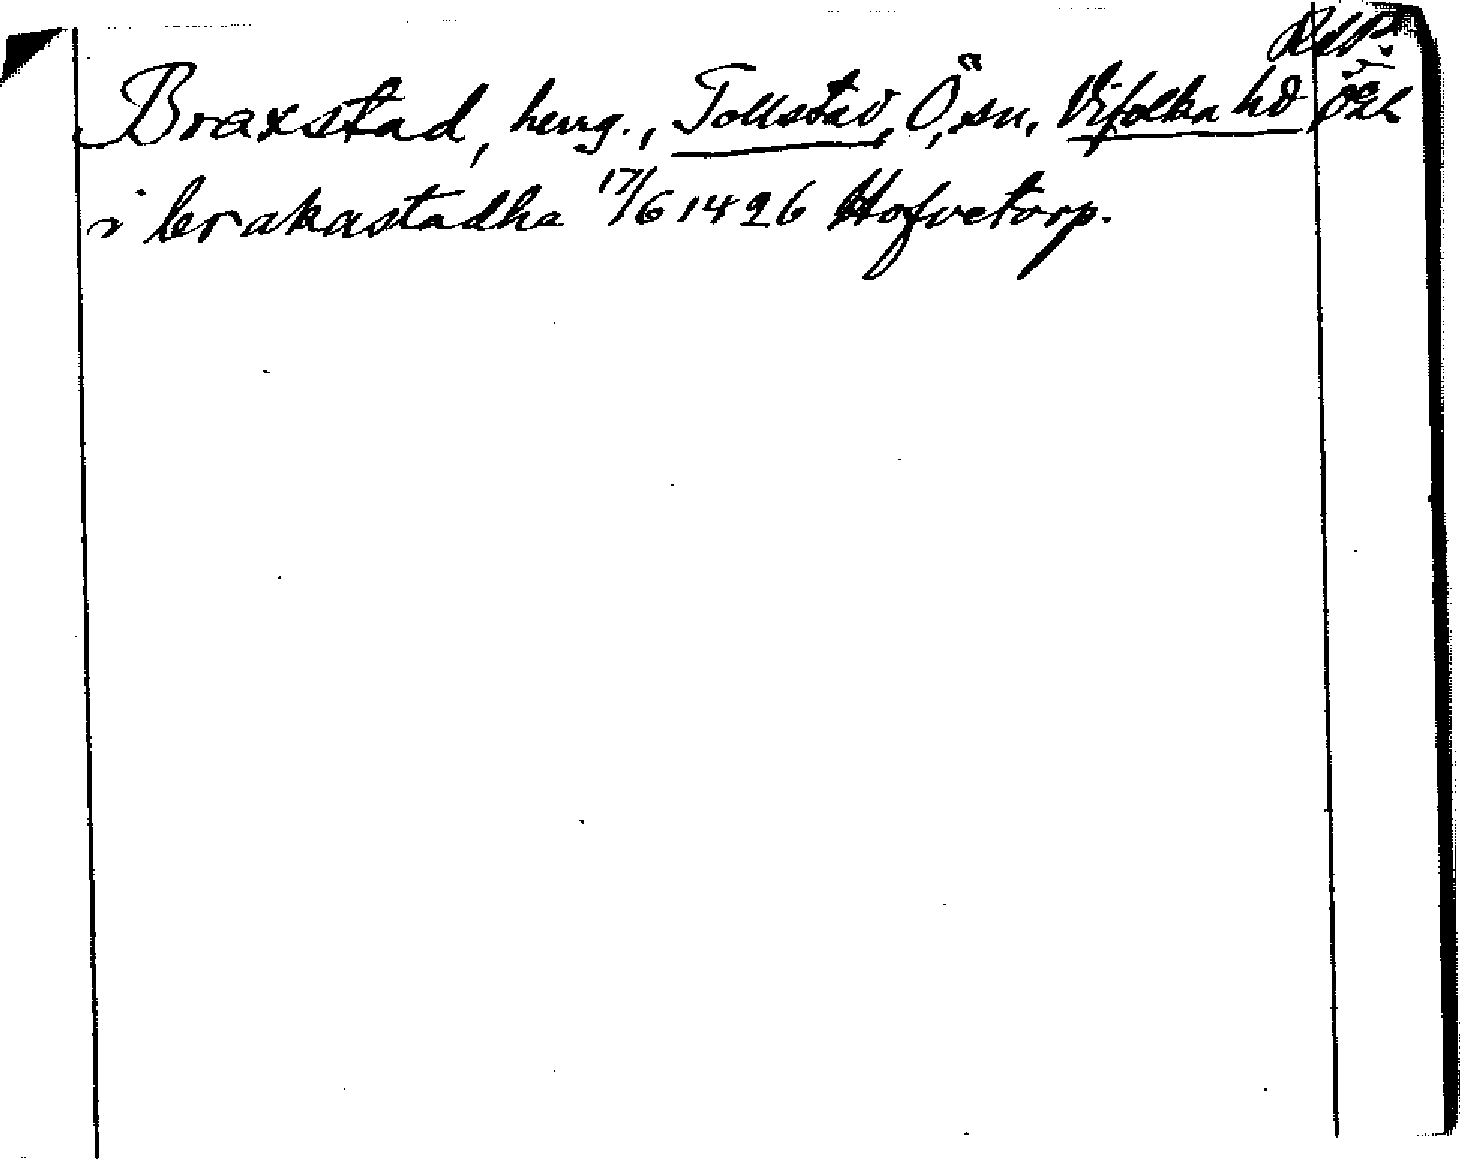 Braxstad, herrg., Tollstad, Ö, sn, Vifolka hd Ögl
i brakastadha 17/6 1426 Hofvetorp.